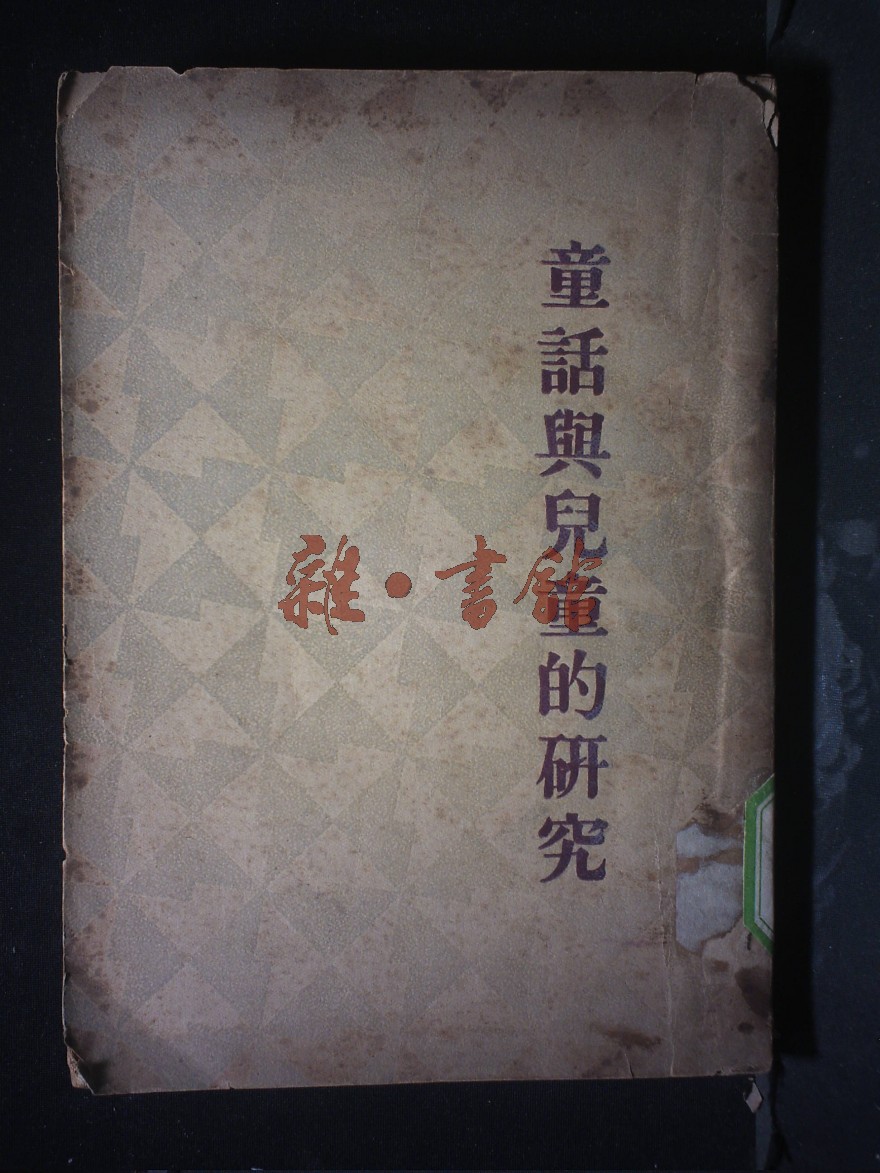 童話與兒童的研究
雜·書館